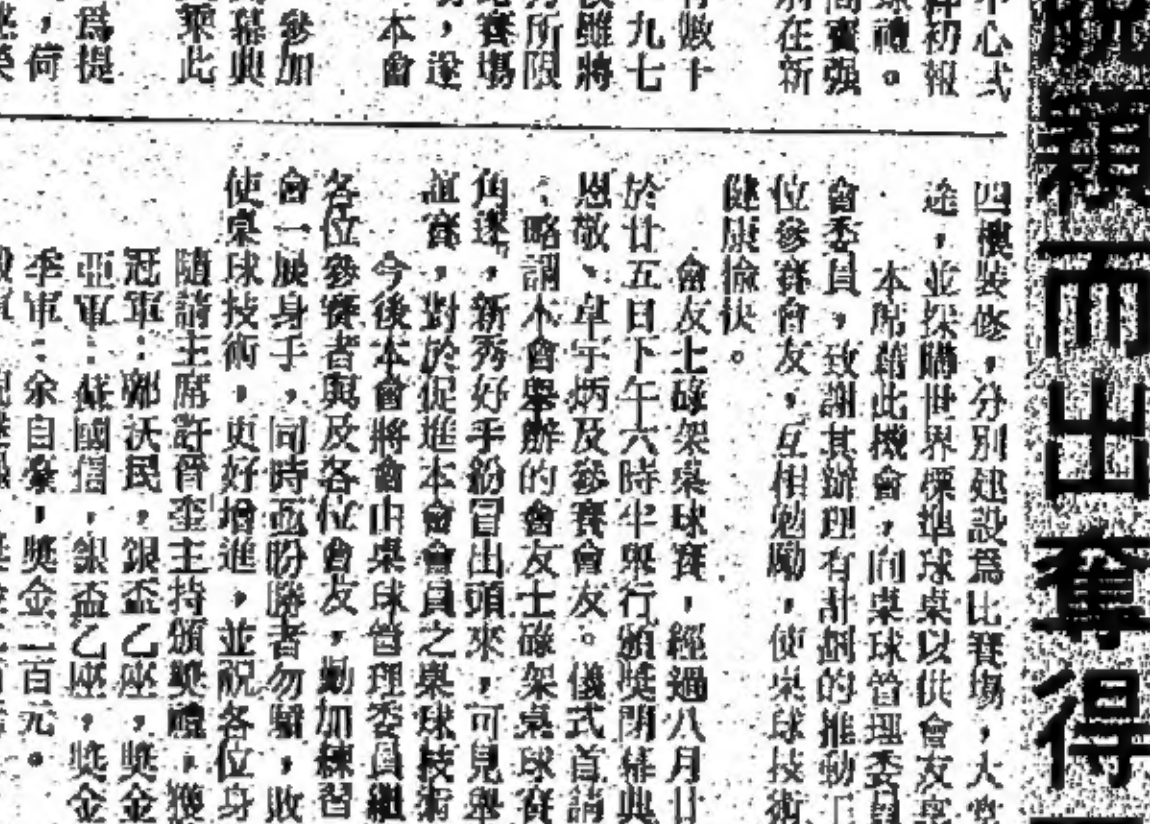 脫穎而出奪得
中心式
初報
球禮。
間賓强
別在新
有數十
九七
後雖將
方所限
賽塲
，遂
本會
參加
幕典
乘此
爲提
，荷
四樓裝修，分別建設爲比賽塲，大
途，並採購世界標準球桌以供會友享
本席藉此機會，向桌球管理委員
會委員，致謝其辦理有計劃的推動
位參賽會友，互相勉勵，使桌球技術
健康愉快。
會友士碌架桌球賽，經過八月廿
於廿五日下午六時半舉行頒獎閉幕典
恩敬、卓宇炳及參賽會友。儀式首請
：略謂本會舉辦的會友士碌架桌球賽
角逐，新秀好手紛冒出頭來，可見舉
誼賽，對於促進本會會員之桌球技術
今後本會將會由桌球管理委員繼
各位參賽者與及各位會友，勤加練習
會一展身手，同時面盼勝者勿驕，敗
使桌球技術，更好增進，並祝各位身
隨請主席許晉奎主持頒獎禮，獲
冠軍：鄭沃民，銀盃乙座，獎金
亞軍：蘇國信，銀盃乙座，獎金
季軍：余自豪，獎金二百元。